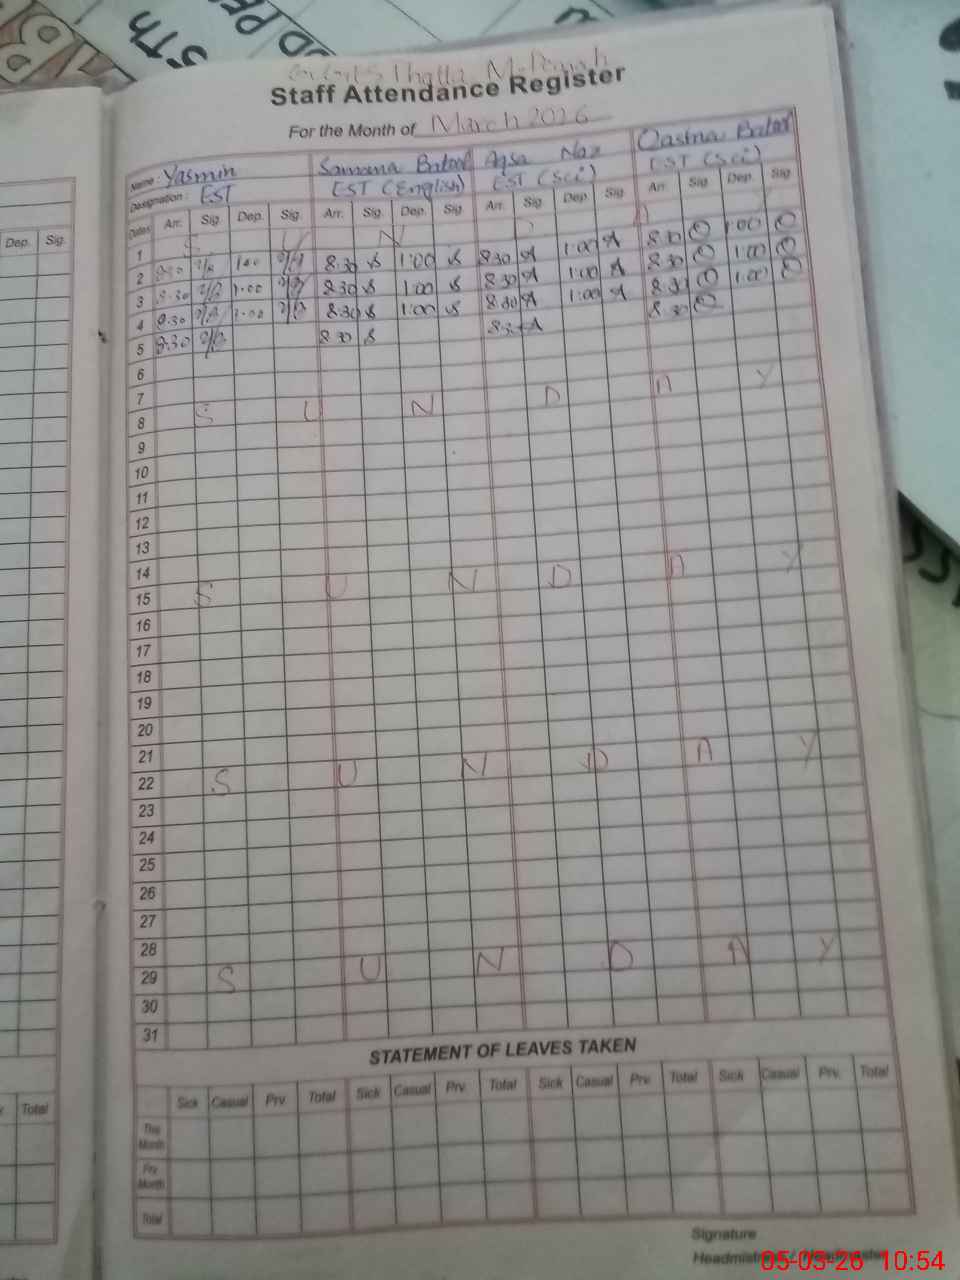 5Th
Staff Attendance Register
For the Month of March 2026
Name: Yasmin Samana Batool Aqsa Naz
Designation: EST EST (English) EST (Sci) EST (Sci)
Dates Arr. Sig. Dep. Sig. Arr. Sig. Dep. Sig. Arr. Sig. Dep. Sig. Arr. Sig. Dep. Sig.
1 S U N D A Y
2 8:30 1:00 8:30 1:00 8:30 1:00 8:30 1:00
3 8:30 1:00 8:30 1:00 8:30 1:00 8:30 1:00
4 8:30 1:00 8:30 1:00 8:30 1:00 8:30 1:00
5 8:30 8:30 8:30 8:30
6
7
8 S U N D A Y
9
10
11
12
13
14
15 S U N D A Y
16
17
18
19
20
21
22 S U N D A Y
23
24
25
26
27
28
29 S U N D A Y
30
31
STATEMENT OF LEAVES TAKEN
Sick Casual Prv. Total Sick Casual Prv. Total Sick Casual Prv. Total Sick Casual Prv. Total
This Month
Prv. Month
Total
Signature
Headmistress / Headmaster
Dep. Sig.
Total
05-03-26 10:54